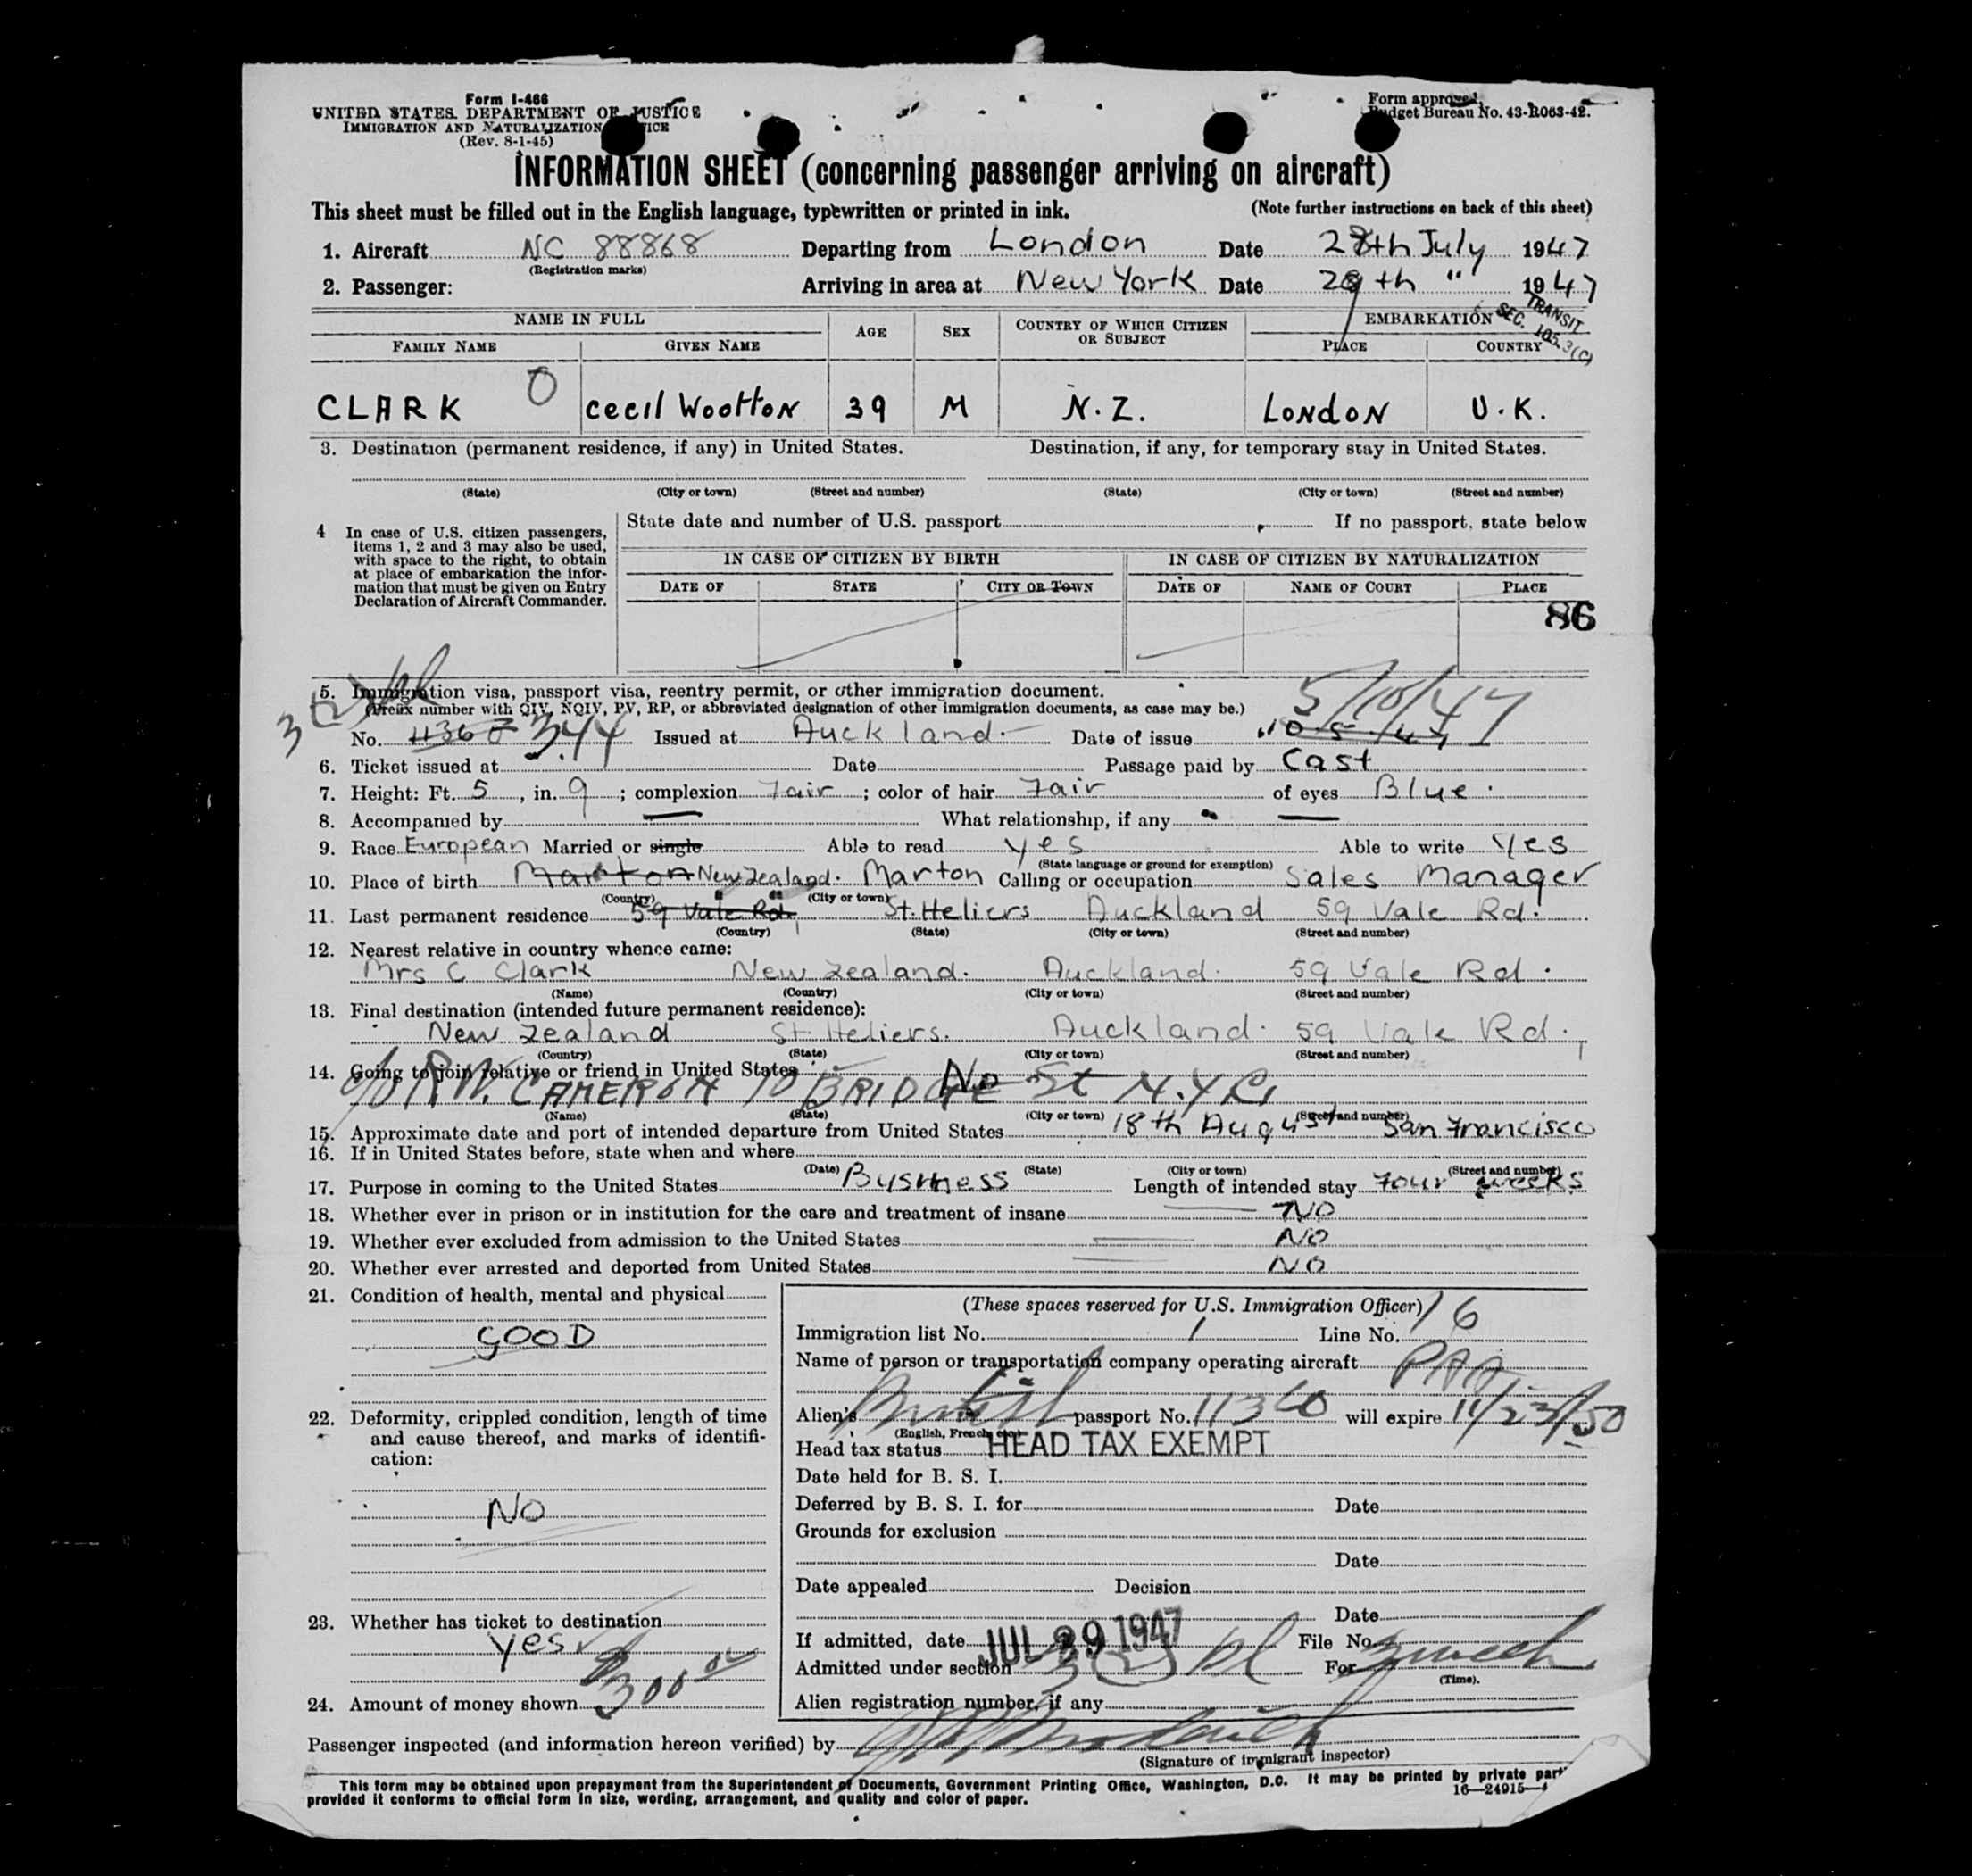 Form I-466
UNITED STATES DEPARTMENT OF JUSTICE
IMMIGRATION AND NATURALIZATION
(Rev. 8-1-45)
Form approved.
Budget Bureau No. 43-R063-42.
INFORMATION SHEET (concerning passenger arriving on aircraft)
This sheet must be filled out in the English language, typewritten or printed in ink. (Note further instructions on back of this sheet)
1. Aircraft NC 88868 Departing from London Date 28th July 1947
(Registration marks)
2. Passenger: Arriving in area at New York Date 29th " 1947
TRANSIT
SEC. 105.3(C)
NAME IN FULL AGE SEX COUNTRY OF WHICH CITIZEN OR SUBJECT EMBARKATION
FAMILY NAME GIVEN NAME PLACE COUNTRY
0
CLARK Cecil Wootton 39 M N.Z. LONDON U.K.
3. Destination (permanent residence, if any) in United States. Destination, if any, for temporary stay in United States.
(State) (City or town) (Street and number) (State) (City or town) (Street and number)
4 In case of U.S. citizen passengers, items 1, 2 and 3 may also be used, with space to the right, to obtain at place of embarkation the information that must be given on Entry Declaration of Aircraft Commander.
State date and number of U.S. passport If no passport, state below
IN CASE OF CITIZEN BY BIRTH IN CASE OF CITIZEN BY NATURALIZATION
DATE OF STATE CITY OR TOWN DATE OF NAME OF COURT PLACE
86
5. Immigration visa, passport visa, reentry permit, or other immigration document.
(Prefix number with QIV, NQIV, PV, RP, or abbreviated designation of other immigration documents, as case may be.) 5/10/47
No. 11360 344 Issued at Auckland Date of issue 10 5 47
6. Ticket issued at Date Passage paid by Cast
7. Height: Ft. 5, in. 9; complexion Fair; color of hair Fair of eyes Blue.
8. Accompanied by — What relationship, if any —
9. Race European Married or single Able to read yes Able to write Yes
(State language or ground for exemption)
10. Place of birth Marton New Zealand. Marton Calling or occupation Sales Manager
(Country) (City or town)
11. Last permanent residence 59 Vale Rd. St. Heliers Auckland 59 Vale Rd.
(Country) (State) (City or town) (Street and number)
12. Nearest relative in country whence came:
Mrs C Clark New Zealand. Auckland. 59 Vale Rd.
(Name) (Country) (City or town) (Street and number)
13. Final destination (intended future permanent residence):
New Zealand St. Heliers. Auckland. 59 Vale Rd.
(Country) (State) (City or town) (Street and number)
14. Going to join relative or friend in United States No
c/o R.W. CAMERON 10 BRIDGE St N.Y.C.
(Name) (State) (City or town) (Street and number)
15. Approximate date and port of intended departure from United States 18th August San Francisco
16. If in United States before, state when and where
(Date) (State) (City or town) (Street and number)
17. Purpose in coming to the United States Business Length of intended stay Four weeks
18. Whether ever in prison or in institution for the care and treatment of insane NO
19. Whether ever excluded from admission to the United States NO
20. Whether ever arrested and deported from United States NO
21. Condition of health, mental and physical
GOOD
22. Deformity, crippled condition, length of time and cause thereof, and marks of identification:
NO
23. Whether has ticket to destination
yes
24. Amount of money shown 300.00
(These spaces reserved for U.S. Immigration Officer)
Immigration list No. 1 Line No. 16
Name of person or transportation company operating aircraft PAA
Alien's British passport No. 11360 will expire 11/23/50
(English, French, etc.)
Head tax status HEAD TAX EXEMPT
Date held for B. S. I.
Deferred by B. S. I. for Date
Grounds for exclusion
Date
Date appealed Decision
Date
If admitted, date JUL 29 1947 File No.
Admitted under section 3(2) For
(Time).
Alien registration number, if any
Passenger inspected (and information hereon verified) by
(Signature of immigrant inspector)
This form may be obtained upon prepayment from the Superintendent of Documents, Government Printing Office, Washington, D.C. It may be printed by private
provided it conforms to official form in size, wording, arrangement, and quality and color of paper. 16—24915-